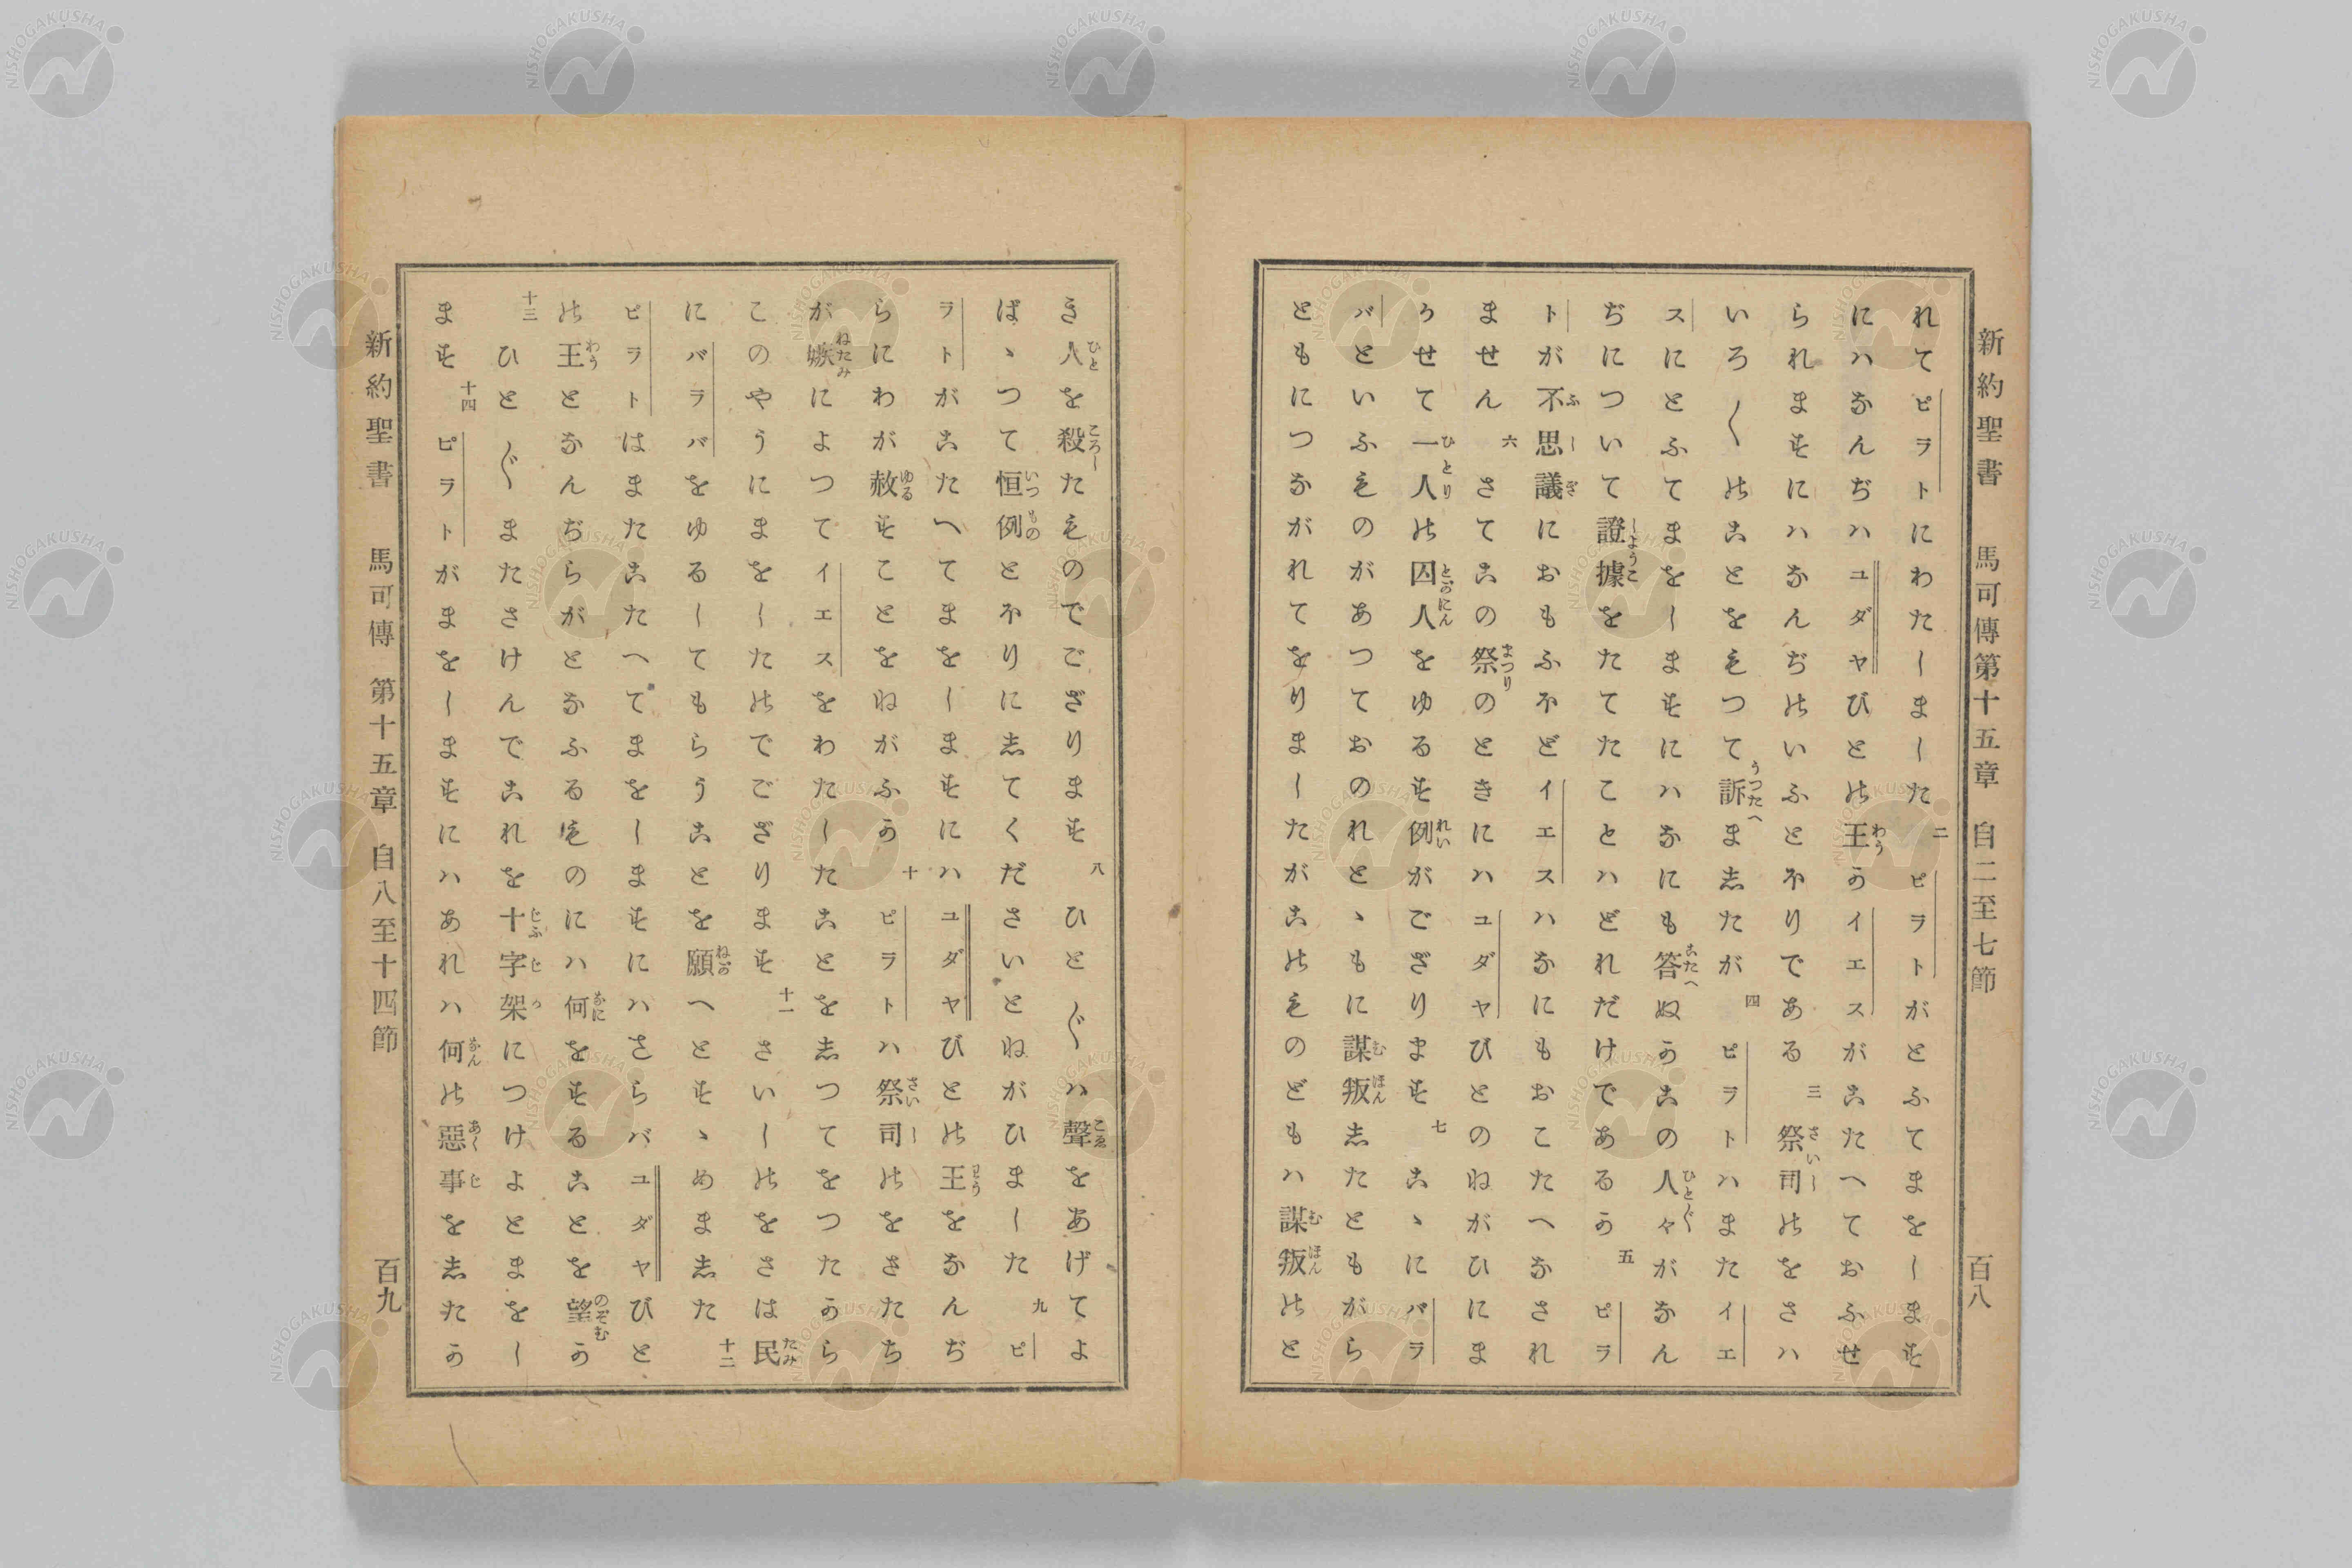 新約聖書 馬可傳第十五章 自二至七節 百八
れてピラトにわたしました 二 ピラトがとふてまをします
にハなんぢハユダヤびとの王かイエスがこたへておふせ
られますにハなんぢのいふとほりである 三 祭司のをさハ
いろ〱のことをもつて訴ましたが 四 ピラトハまたイエ
スにとふてまをしますにハなにも答ぬかこの人々がなん
ぢについて證據をたてたことハどれだけであるか 五 ピラ
トが不思議におもふほどイエスハなにもおこたへなされ
ません 六 さてこの祭のときにハユダヤびとのねがひにま
かせて一人の囚人をゆるす例がござります 七 こゝにバラ
バといふものがあつておのれとゝもに謀叛したともがら
ともにつながれてをりましたがこのものどもハ謀叛のと
き人を殺たものでござります 八 ひと〲ハ聲をあげてよ
ばゝつて恒例とほりにしてくださいとねがひました 九 ピ
ラトがこたへてまをしますにハユダヤびとの王をなんぢ
らにわが赦すことをねがふか 十 ピラトハ祭司のをさたち
が嫉によつてイエスをわたしたことをしつてをつたから
このやうにまをしたのでござります 十一 さいしのをさは民
にバラバをゆるしてもらうことを願へとすゝめました 十二
ピラトはまたこたへてまをしますにハさらバユダヤびと
の王となんぢらがとなふるものにハ何をすることを望か
十三 ひと〲またさけんでこれを十字架につけよとまをし
ます 十四 ピラトがまをしますにハあれハ何の惡事をしたか
新約聖書 馬可傳 第十五章 自八至十四節 百九
NISHOGAKUSHA